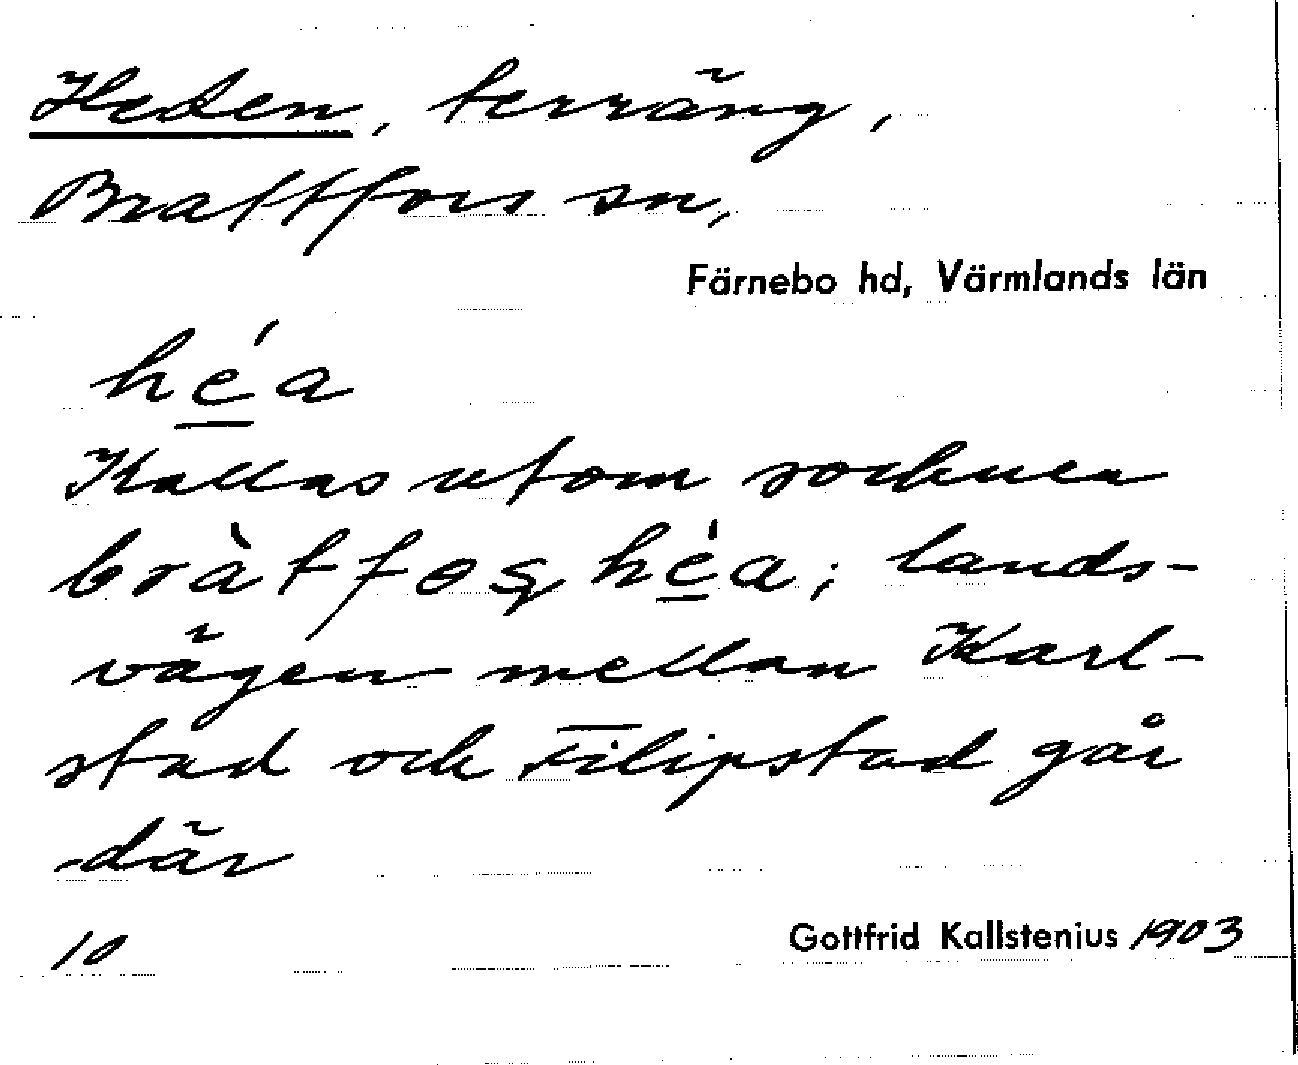 Heden, terräng,
Brattfors sn,
Färnebo hd, Värmlands län
héa
Kallas utom socknen
bràtfoshéa; lands-
vägen mellan Karl-
stad och Filipstad går
där
10 Gottfrid Kallstenius 1903